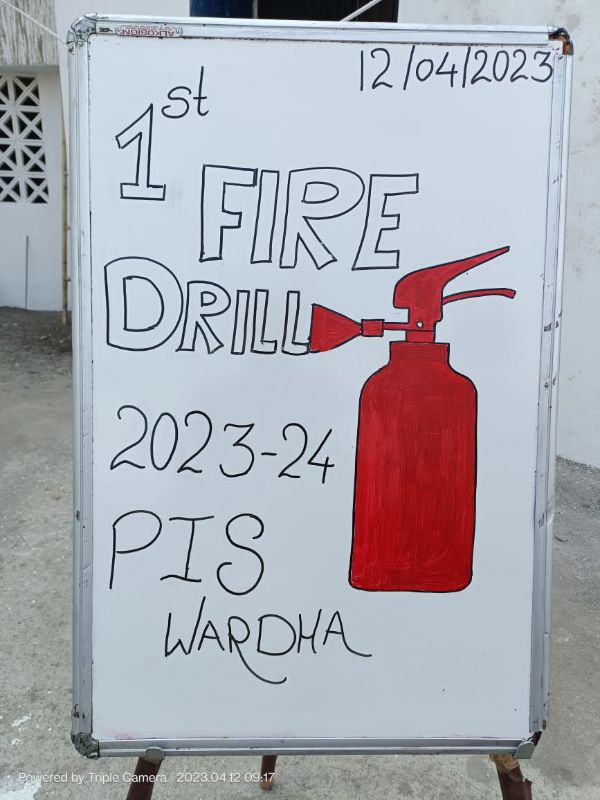 ALKOSIGN
12/04/2023
1st
FIRE
DRILL
2023-24
PIS
WARDHA
Powered by Triple Camera 2023.04.12 09:17